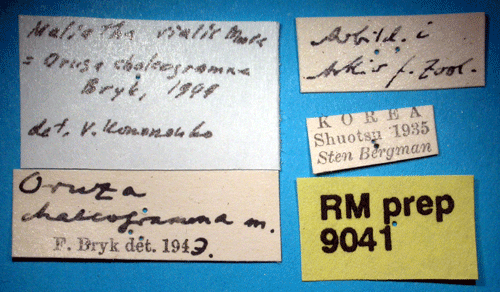 Maliattha vialis Moore
= Oruza chalcogramma
Bryk, 1948
det. V. Kononenko
Oruza
chalcogramma m.
F. Bryk det. 1943.
Avbild. i
Arkiv f. Zool.
KOREA
Shuotsu 1935
Sten Bergman
RM prep
9041